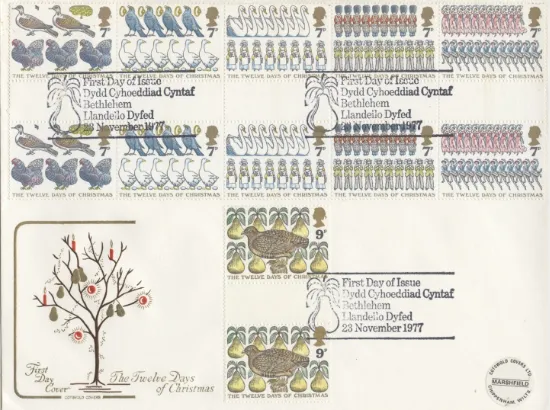 7P 7P 7P 7P 7P
THE TWELVE DAYS OF CHRISTMAS THE TWELVE DAYS OF CHRISTMAS THE TWELVE DAYS OF CHRISTMAS THE TWELVE DAYS OF CHRISTMAS THE TWELVE DAYS OF CHRISTMAS
First Day of Issue
Dydd Cyhoeddiad Cyntaf
Bethlehem
Llandeilo Dyfed
23 November 1977
First Day of Issue
Dydd Cyhoeddiad Cyntaf
Bethlehem
Llandeilo Dyfed
23 November 1977
7P 7P 7P 7P 7P
THE TWELVE DAYS OF CHRISTMAS THE TWELVE DAYS OF CHRISTMAS THE TWELVE DAYS OF CHRISTMAS THE TWELVE DAYS OF CHRISTMAS THE TWELVE DAYS OF CHRISTMAS
9P
THE TWELVE DAYS OF CHRISTMAS
First Day of Issue
Dydd Cyhoeddiad Cyntaf
Bethlehem
Llandeilo Dyfed
23 November 1977
9P
THE TWELVE DAYS OF CHRISTMAS
First
Day
Cover
The Twelve Days
of Christmas
COTSWOLD COVERS
COTSWOLD COVERS LTD.
MARSHFIELD
CHIPPENHAM, WILTS